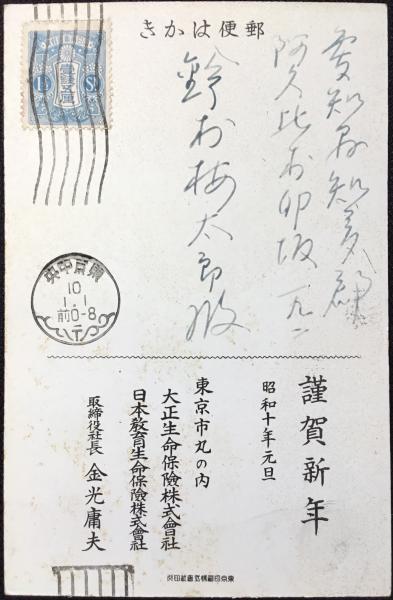 郵便はかき
愛知縣知多郡
阿久比村卯坂一九一
鈴村梅太郎殿
東京中央
10
1.1
前0-8
謹賀新年
昭和十年元旦
東京市丸の内
大正生命保險株式會社
日本敎育生命保險株式會社
取締役社長 金光庸夫